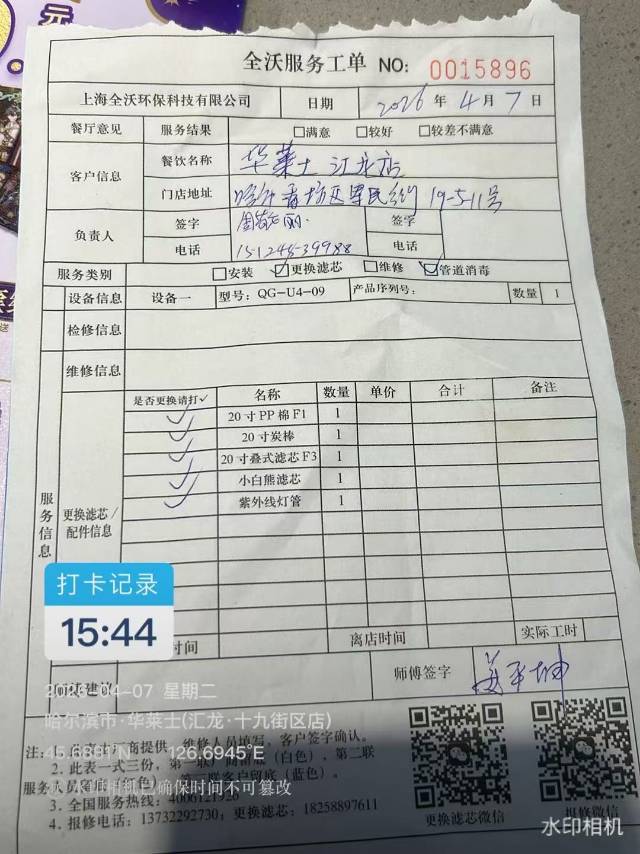 元
全沃服务工单 NO: 0015896
上海全沃环保科技有限公司 日期 2026年4月7日
餐厅意见 服务结果 □满意 □较好 □较差不满意
客户信息 餐饮名称 华莱士 江龙店
门店地址 哈尔 香坊区军民街 19-5-11号
负责人 签字 签字
电话 15124539988 电话
服务类别 □安装 ☑更换滤芯 □维修 ☑管道消毒
设备信息 设备一 型号: QG-U4-09 产品序列号: 数量 1
检修信息
维修信息
服务信息
更换滤芯/配件信息
是否更换请打✓ 名称 数量 单价 合计 备注
✓ 20寸PP棉F1 1
✓ 20寸炭棒 1
✓ 20寸叠式滤芯F3 1
✓ 小白熊滤芯 1
✓ 紫外线灯管 1
打卡记录
15:44
时间 离店时间 实际工时
建议 师傅签字
2026-04-07 星期二
哈尔滨市·华莱士(汇龙·十九街区店)
45.6881°N 126.6945°E
水印相机已确保时间不可篡改
注:
商提供, 维修人员填写, 客户签字确认。
2. 此表一式三份, 第一联 (白色), 第二联
服务 (红色) 第三联客户留底 (蓝色)。
3. 全国服务热线: 4006121926
4. 报修电话: 13732292730; 更换滤芯: 18258897611
更换滤芯微信
报修微信
水印相机